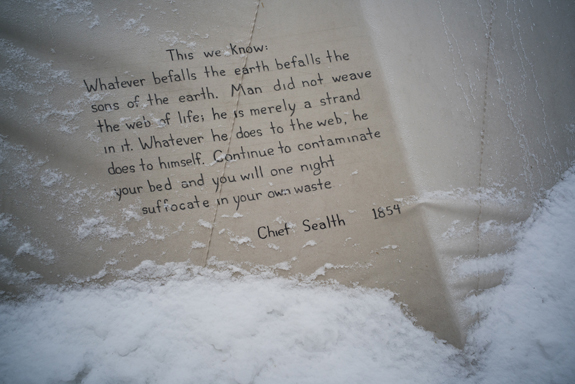 This we know:
Whatever befalls the earth befalls the
sons of the earth. Man did not weave
the web of life; he is merely a strand
in it. Whatever he does to the web, he
does to himself. Continue to contaminate
your bed and you will one night
suffocate in your own waste
Chief Sealth 1854